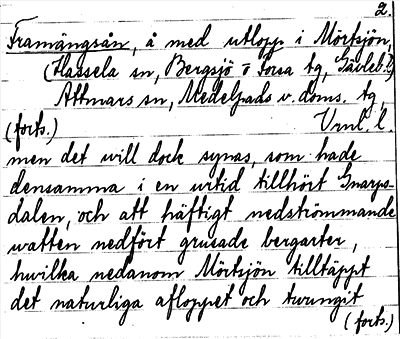 2.
Framängsån, å med utlopp i Mörtsjön,
(Hassela sn, Bergsjö o Forsa tg, Gävleb. l.)
Attmars sn, Medelpads v. doms. tg,
(forts.) Vrnl. l.
men det will dock synas, som hade
densamma i en urtid tillhört Gnarps-
dalen, och att häftigt nedströmmande
watten nedfört grusade bergarter,
hwilka nedanom Mörtsjön tilltäppt
det naturliga afloppet och twungit
(forts.)